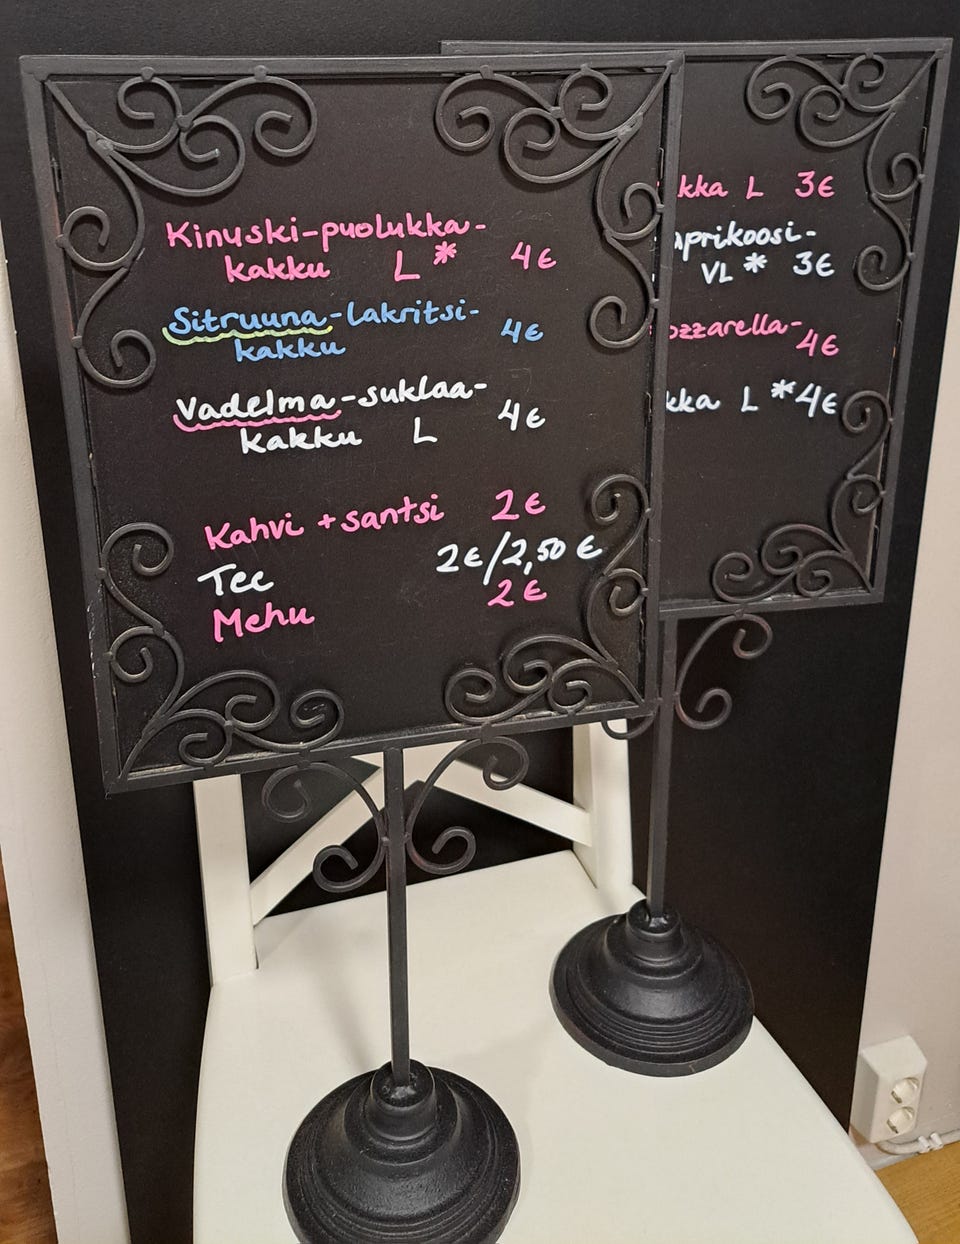 Kinuski-puolukka-
kakku L * 4€
Sitruuna-lakritsi-
kakku 4€
Vadelma-suklaa-
kakku L 4€
Kahvi + santsi 2€
Tee 2€/2,50€
Mehu 2€
kka L 3€
aprikoosi-
VL * 3€
ozzarella-
4€
kka L * 4€